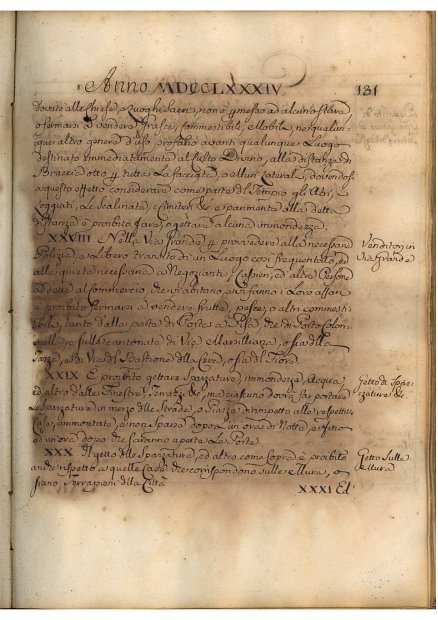 Anno MDCCLXXXIV. 131
dovuto alle Chiese, e Luoghi Sacri, non è permesso ad alcuno stare,
o fermarsi a vendere frasche, commestibili, Mobilie, ne qualun-
que altro genere d'uso profano avanti qualunque Luogo
destinato immediatamente al Culto Divino, alla distanza di
Braccia otto per tutta la facciata, o alleun laterale, dovendosi
a questo effetto considerare come parte del Tempio gli Atrj, i
Loggiati, le Scalinate, e Cimiterj, e parimente alla detta
distanza è proibito fare, o gettare alcuna immondezza.
XXVIII Nella Via Grande per provvedere alla necessaria
Polizia, e libero transito di un Luogo così frequentato, ed
alla quiete necessaria a Negozianti, Cassieri, ed altre Persone
addette al Commercio, che vi abitano, e vi fanno i Loro affari
è proibito fermarsi a vendere frutta, pesce, o altri commesti-
bili, tanto dalla parte di Porta a Pisa, che di Porta Colon-
nella, e sulla cantonata di Via Marilliana, o sia della
Posta, e di Via di Bastione della Cera, o sia di Fiora.
XXIX È proibito gettare Spazzature, immondezze, Acqua,
ed altro dalle Finestre, Terrazze &c, ma ciascuno dovrà far portare
le Spazzature in mezzo delle Strade, o Piazze dirimpetto alle respettive
Case, ammontate, e non sparse dopo un'ora di Notte, e fino
ad un'ora dopo che saranno aperte le Porte.
XXX Il getto delle Spazzature, ed altro come sopra è proibito
anche rispetto a quelle Case che corrispondono sulle Mura, o
siano Terrapieni della Città
XXXI Ed
Venditori in
Via Grande
Getto di Spaz-
zature &c
Getto sulle
Mura